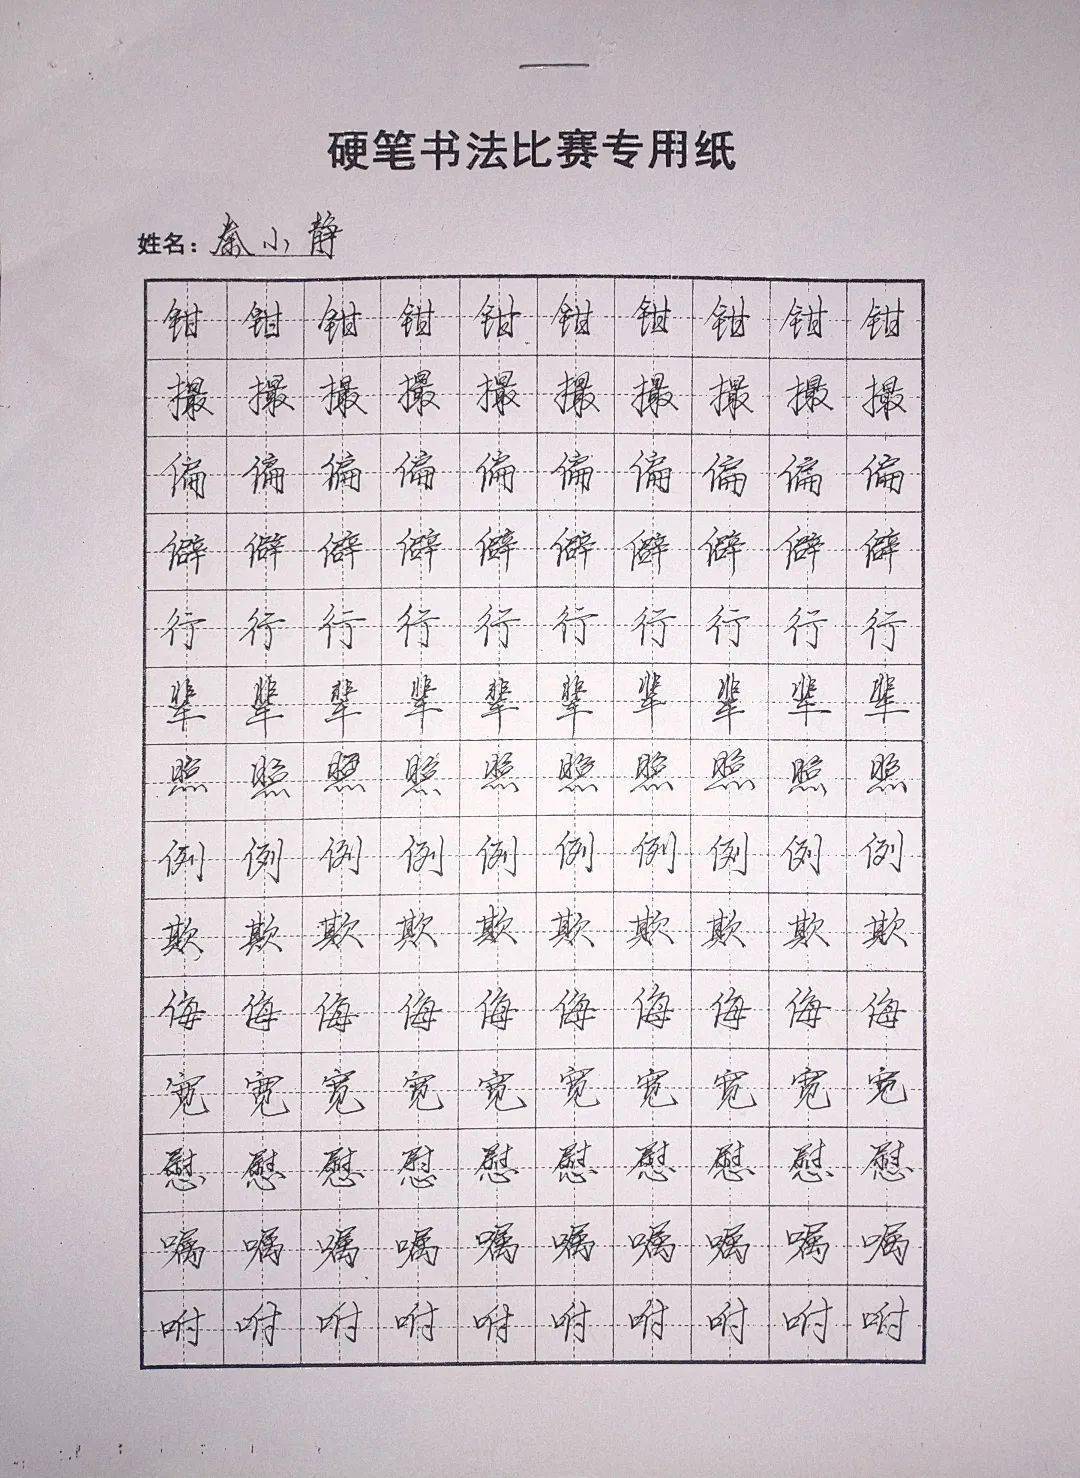 硬笔书法比赛专用纸
姓名：秦小静
钳钳钳钳钳钳钳钳钳钳
撮撮撮撮撮撮撮撮撮撮
偏偏偏偏偏偏偏偏偏偏
僻僻僻僻僻僻僻僻僻僻
行行行行行行行行行行
辈辈辈辈辈辈辈辈辈辈
照照照照照照照照照照
例例例例例例例例例例
欺欺欺欺欺欺欺欺欺欺
侮侮侮侮侮侮侮侮侮侮
宽宽宽宽宽宽宽宽宽宽
慰慰慰慰慰慰慰慰慰慰
嘱嘱嘱嘱嘱嘱嘱嘱嘱嘱
咐咐咐咐咐咐咐咐咐咐